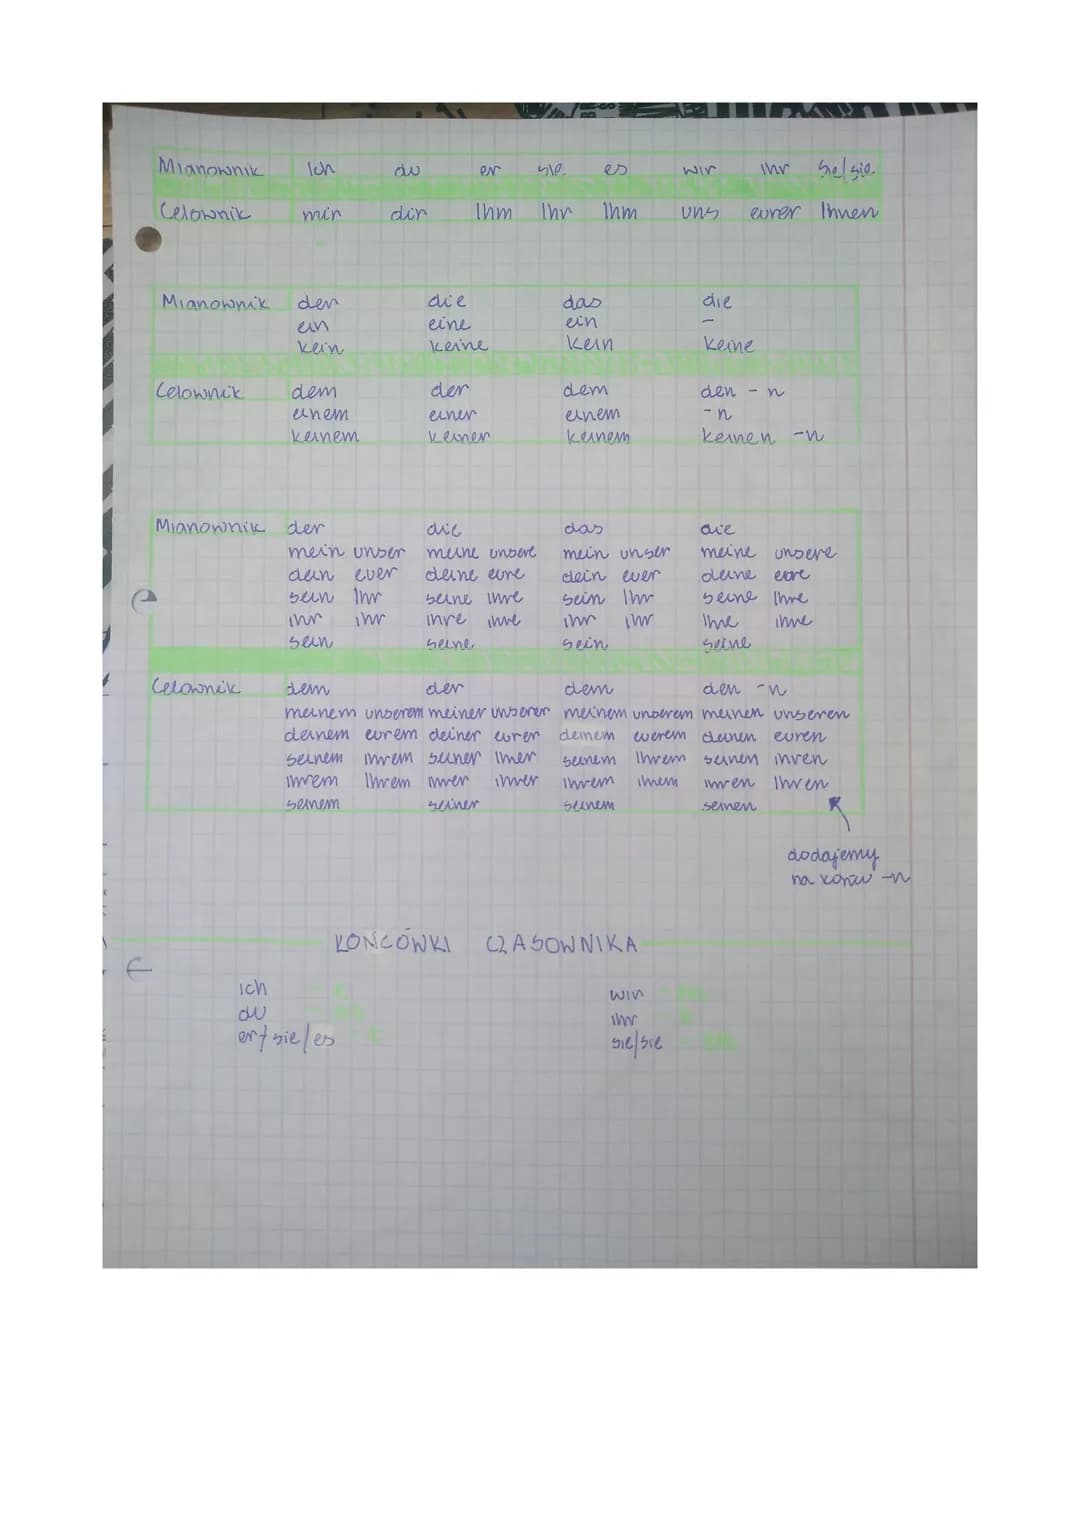 Mianownik Ich du er sie es wir ihr sie/sie
Celownik mir dir Ihm Ihr Ihm uns eurer Ihnen
Mianownik der die das die
ein eine ein -
kein keine kein keine
Celownik dem der dem den -n
einem einer einem -n
keinem keiner keinem keinen -n
Mianownik der die das die
mein unser meine unsere mein unser meine unsere
dein euer deine eure dein euer deine eure
sein Ihr seine Ihre sein Ihr seine Ihre
ihr ihr ihre ihre ihr ihr Ihre ihre
sein seine sein seine
Celownik dem der dem den -n
meinem unserem meiner unserer meinem unserem meinen unseren
deinem eurem deiner eurer deinem euerem deinen euren
seinem ihrem seiner Ihrer seinem Ihrem seinen ihren
ihrem Ihrem ihrer ihrer ihrem ihrem ihren Ihren
seinem seiner seinem seinen
dodajemy
na końcu -n
KOŃCÓWKI CZASOWNIKA
ich - e wir - en
du - st ihr - t
er/sie/es - t sie/sie - en